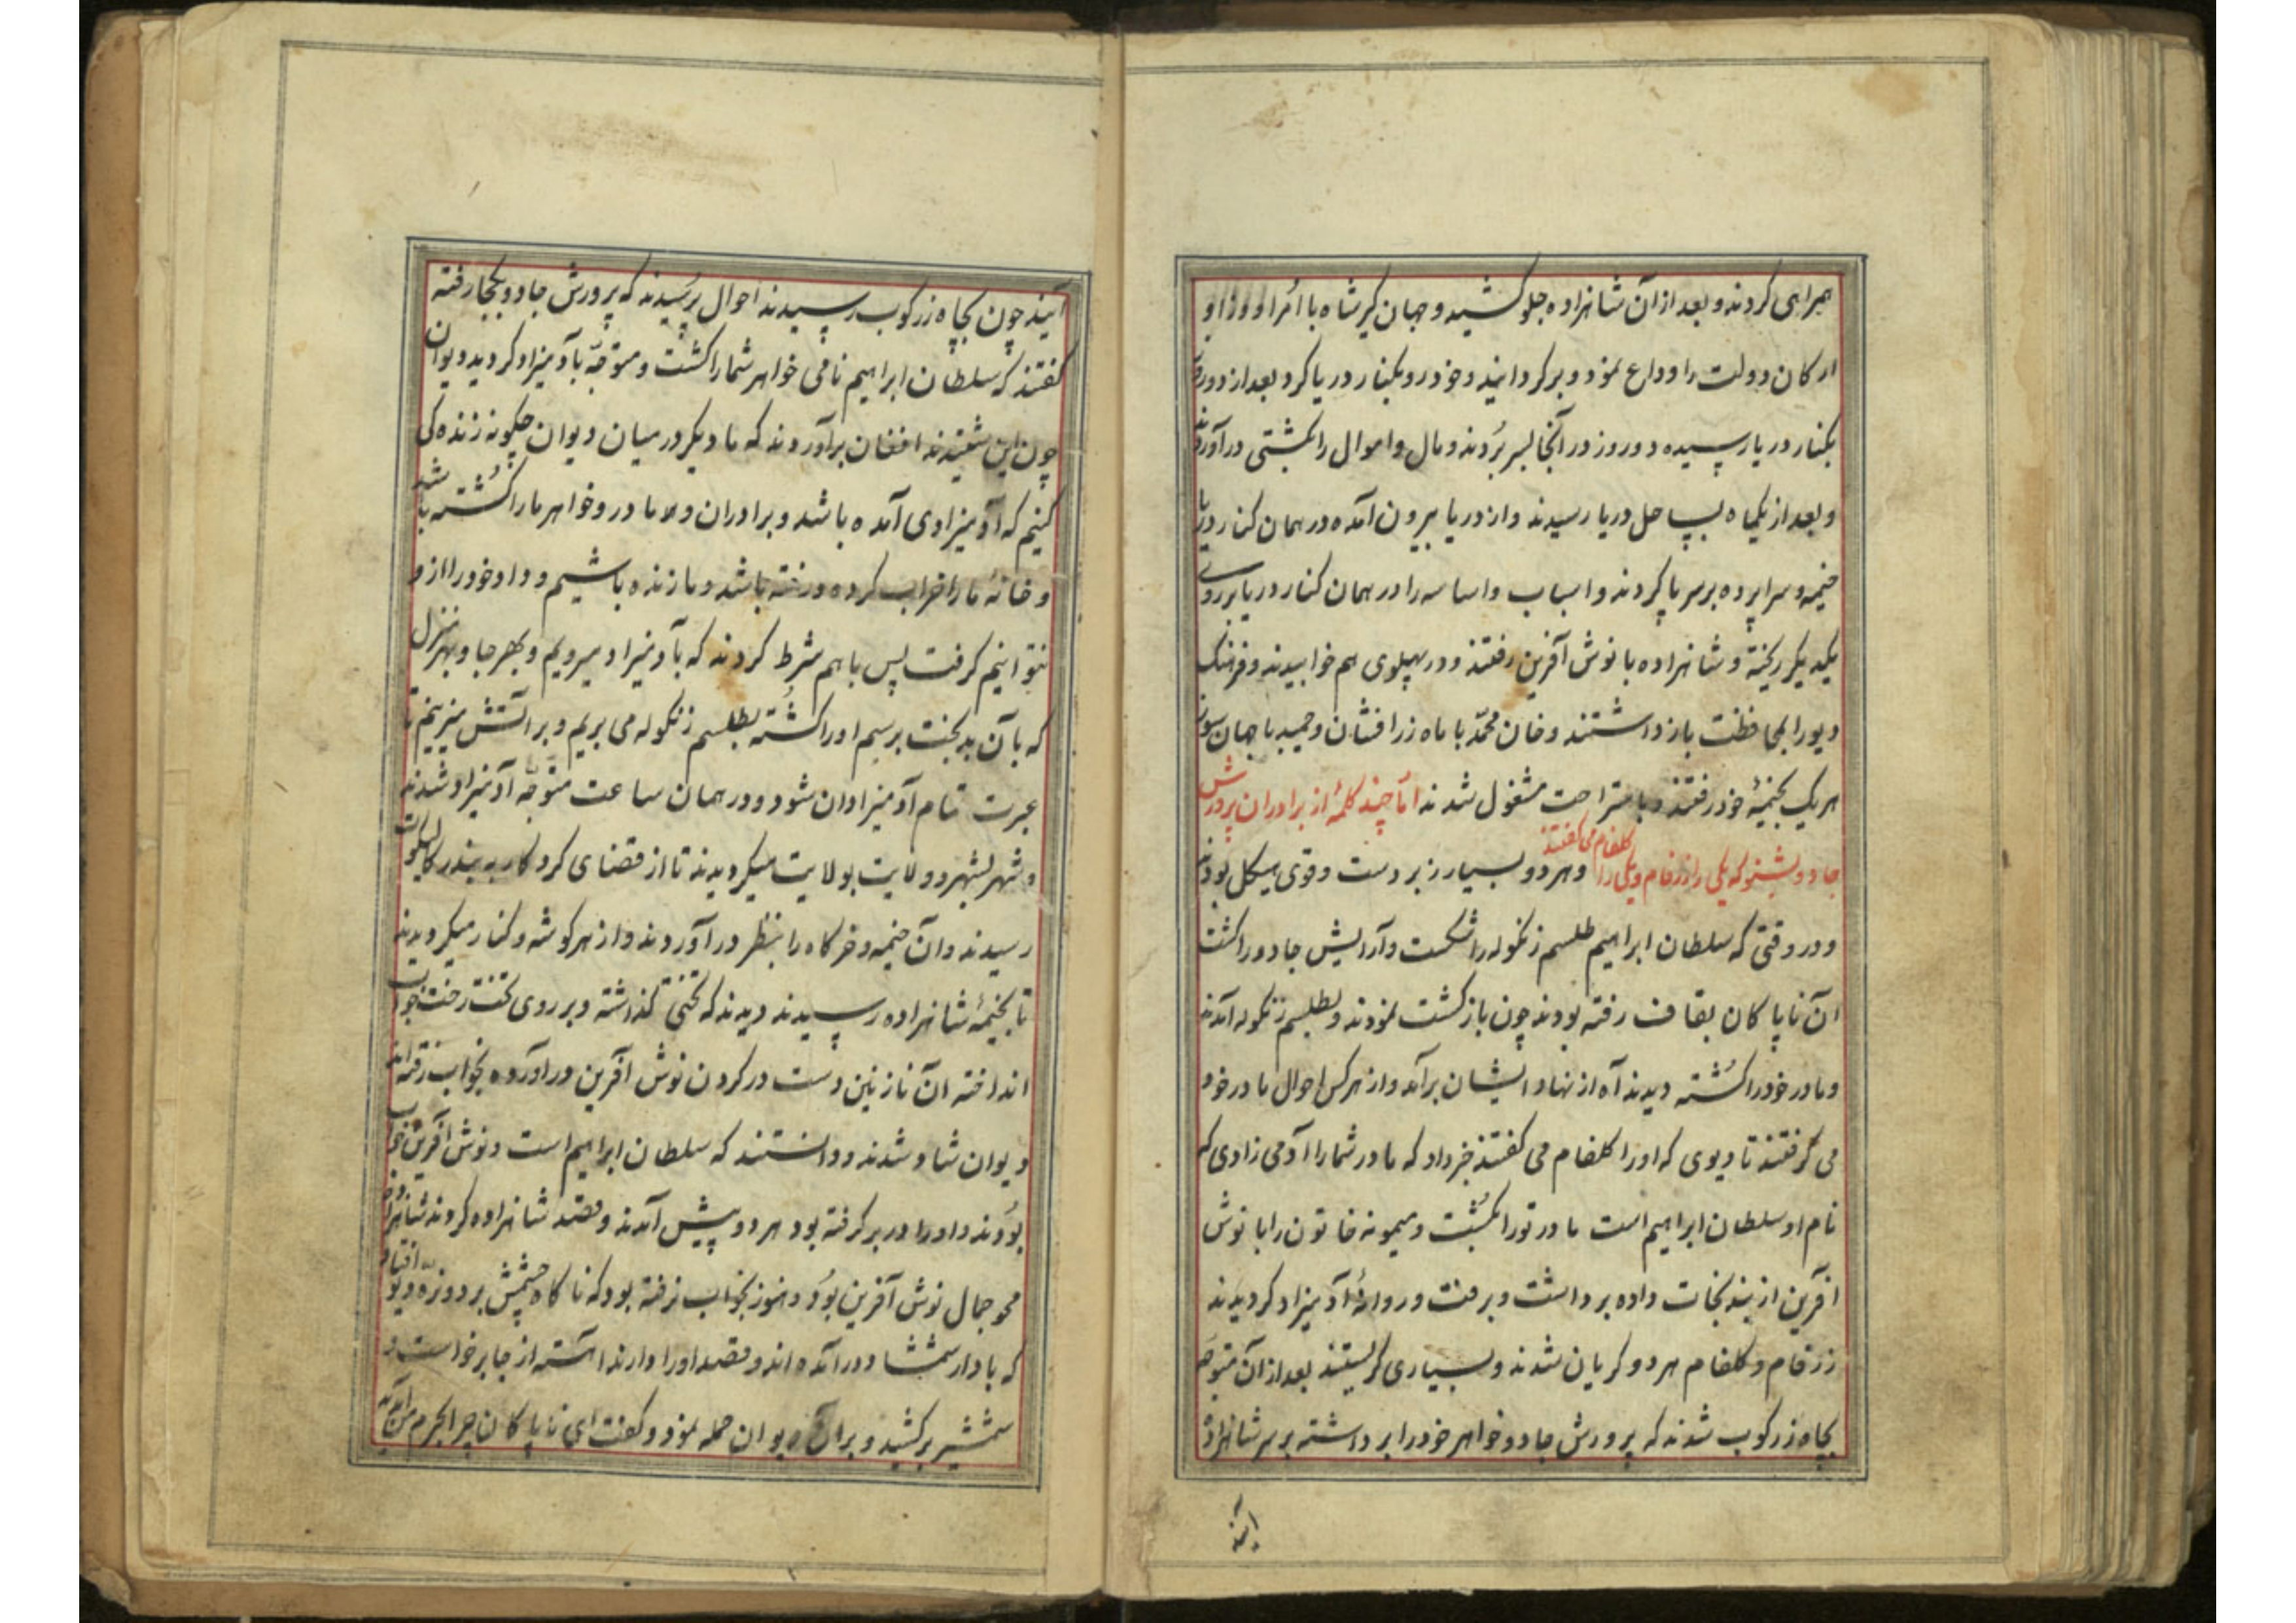 همراهی کردند و بعد از آن شاهزاده جلو کشید و جهان کیر شاه با اُمرا و وزرا و
ارکان دولت را وداع نمود و برکردانید و خود رو بکنار دریا کرد بعد از دو روز
بکنار دریا رسیده دو روز در آنجا بسر بُردند و مال و اموال را بکشتی درآوردند
و بعد از یکماه بساحل دریا رسیدند و از دریا بیرون آمده در همان کنار دریا
خیمه و سراپرده بر سر پا کردند و اسباب و اساسه را در همان کنار دریا بر روی
یکدیکر ریخته و شاهزاده با نوش آفرین رفتند و در پهلوی هم خوابیدند و فرهنک
دیو را بمحافظت بازداشتند و خان محمّد با ماه زرافشان و حمید با جهان سوز
هریک بخیمهٔ خود رفتند و باستراحت مشغول شدند امّا چند کلمهٔ از برادران پرورش
جادو بشنو که یکی را زرفام و یکی را کلفام می کفتند و هردو بسیار زبردست و قوی هیکل بودند
و در وقتی که سلطان ابراهیم طلسم زنکوله را شکست و آرایش جادو را کشت
آن ناپاکان بقاف رفته بودند چون بازکشت نمودند و بطلسم زنکوله آمدند
و مادر خود را کُشته دیدند آه از نهاد ایشان برآمد و از هرکس احوال مادر خود
می کرفتند تا دیوی که اورا کلفام می کفتند خبر داد که مادر شما را آدمی زادی که
نام او سلطان ابراهیم است مادر تورا بکُشت و میمونه خاتون را با نوش
آفرین از بند نجات داده برداشت و برفت و روانهٔ آدمیزاد کردیدند
زرفام و کلفام هردو کریان شدند و بسیاری کریستند بعد از آن متوجه
بچاه زرکوب شدند که پرورش جادو خواهر خود را برداشته بر سر شاهزاده
آیند
آیند چون بچاه زرکوب رسیدند احوال پرسیدند که پرورش جادو بکجا رفته
کفتند که سلطان ابراهیم نامی خواهر شما را کشت و متوجّه بآدمیزاد کردید دیوان
چون این شنیدند افغان برآوردند که ما دیکر در میان دیوان چکونه زنده کی
کنیم که آدمیزادی آمده باشد و برادران و مادر و خواهر ما را کُشته باشد
و خانهٔ ما را خراب کرده و رفته باشد و ما زنده باشیم و داد خود را از او
نتوانیم کرفت پس باهم شرط کردند که بآدمیزاد میرویم و بهر جا و بهر منزل
که بآن بدبخت برسیم او را کُشته بطلسم زنکوله می بریم و بر آتش میزنیم تا
عبرت تمام آدمیزادان شود و در همان ساعت متوّجه آدمیزاد شدند
و شهر بشهر و ولایت بولایت میکردیدند تا از قضای کردکار به بندر
رسیدند و آن خیمه و خرکاه را بنظر درآوردند و از هر کوشه و کنار میکردیدند
تا بخیمهٔ شاهزاده رسیدند دیدند که تختی کذاشته و بر روی تخت رخت خواب
انداخته آن نازنین دست در کردن نوش آفرین درآورده بخواب رفته اند
دیوان شاد شدند و دانستند که سلطان ابراهیم است و نوش آفرین خواب
بودند و او را در بر کرفته بود هردو پیش آمدند و قصد شاهزاده کردند شاهزاده
محو جمال نوش آفرین بوُد و هنوز بخواب نرفته بود که ناکاه چشمش بر دو نره دیو افتاد
که با دار شمشاد درآمده اند و قصد او را دارند آهسته از جا برخواست و
شمشیر برکشید و بر آن دیوان حمله نمود و کفت ای ناپاکان چرا بحرم من آمده